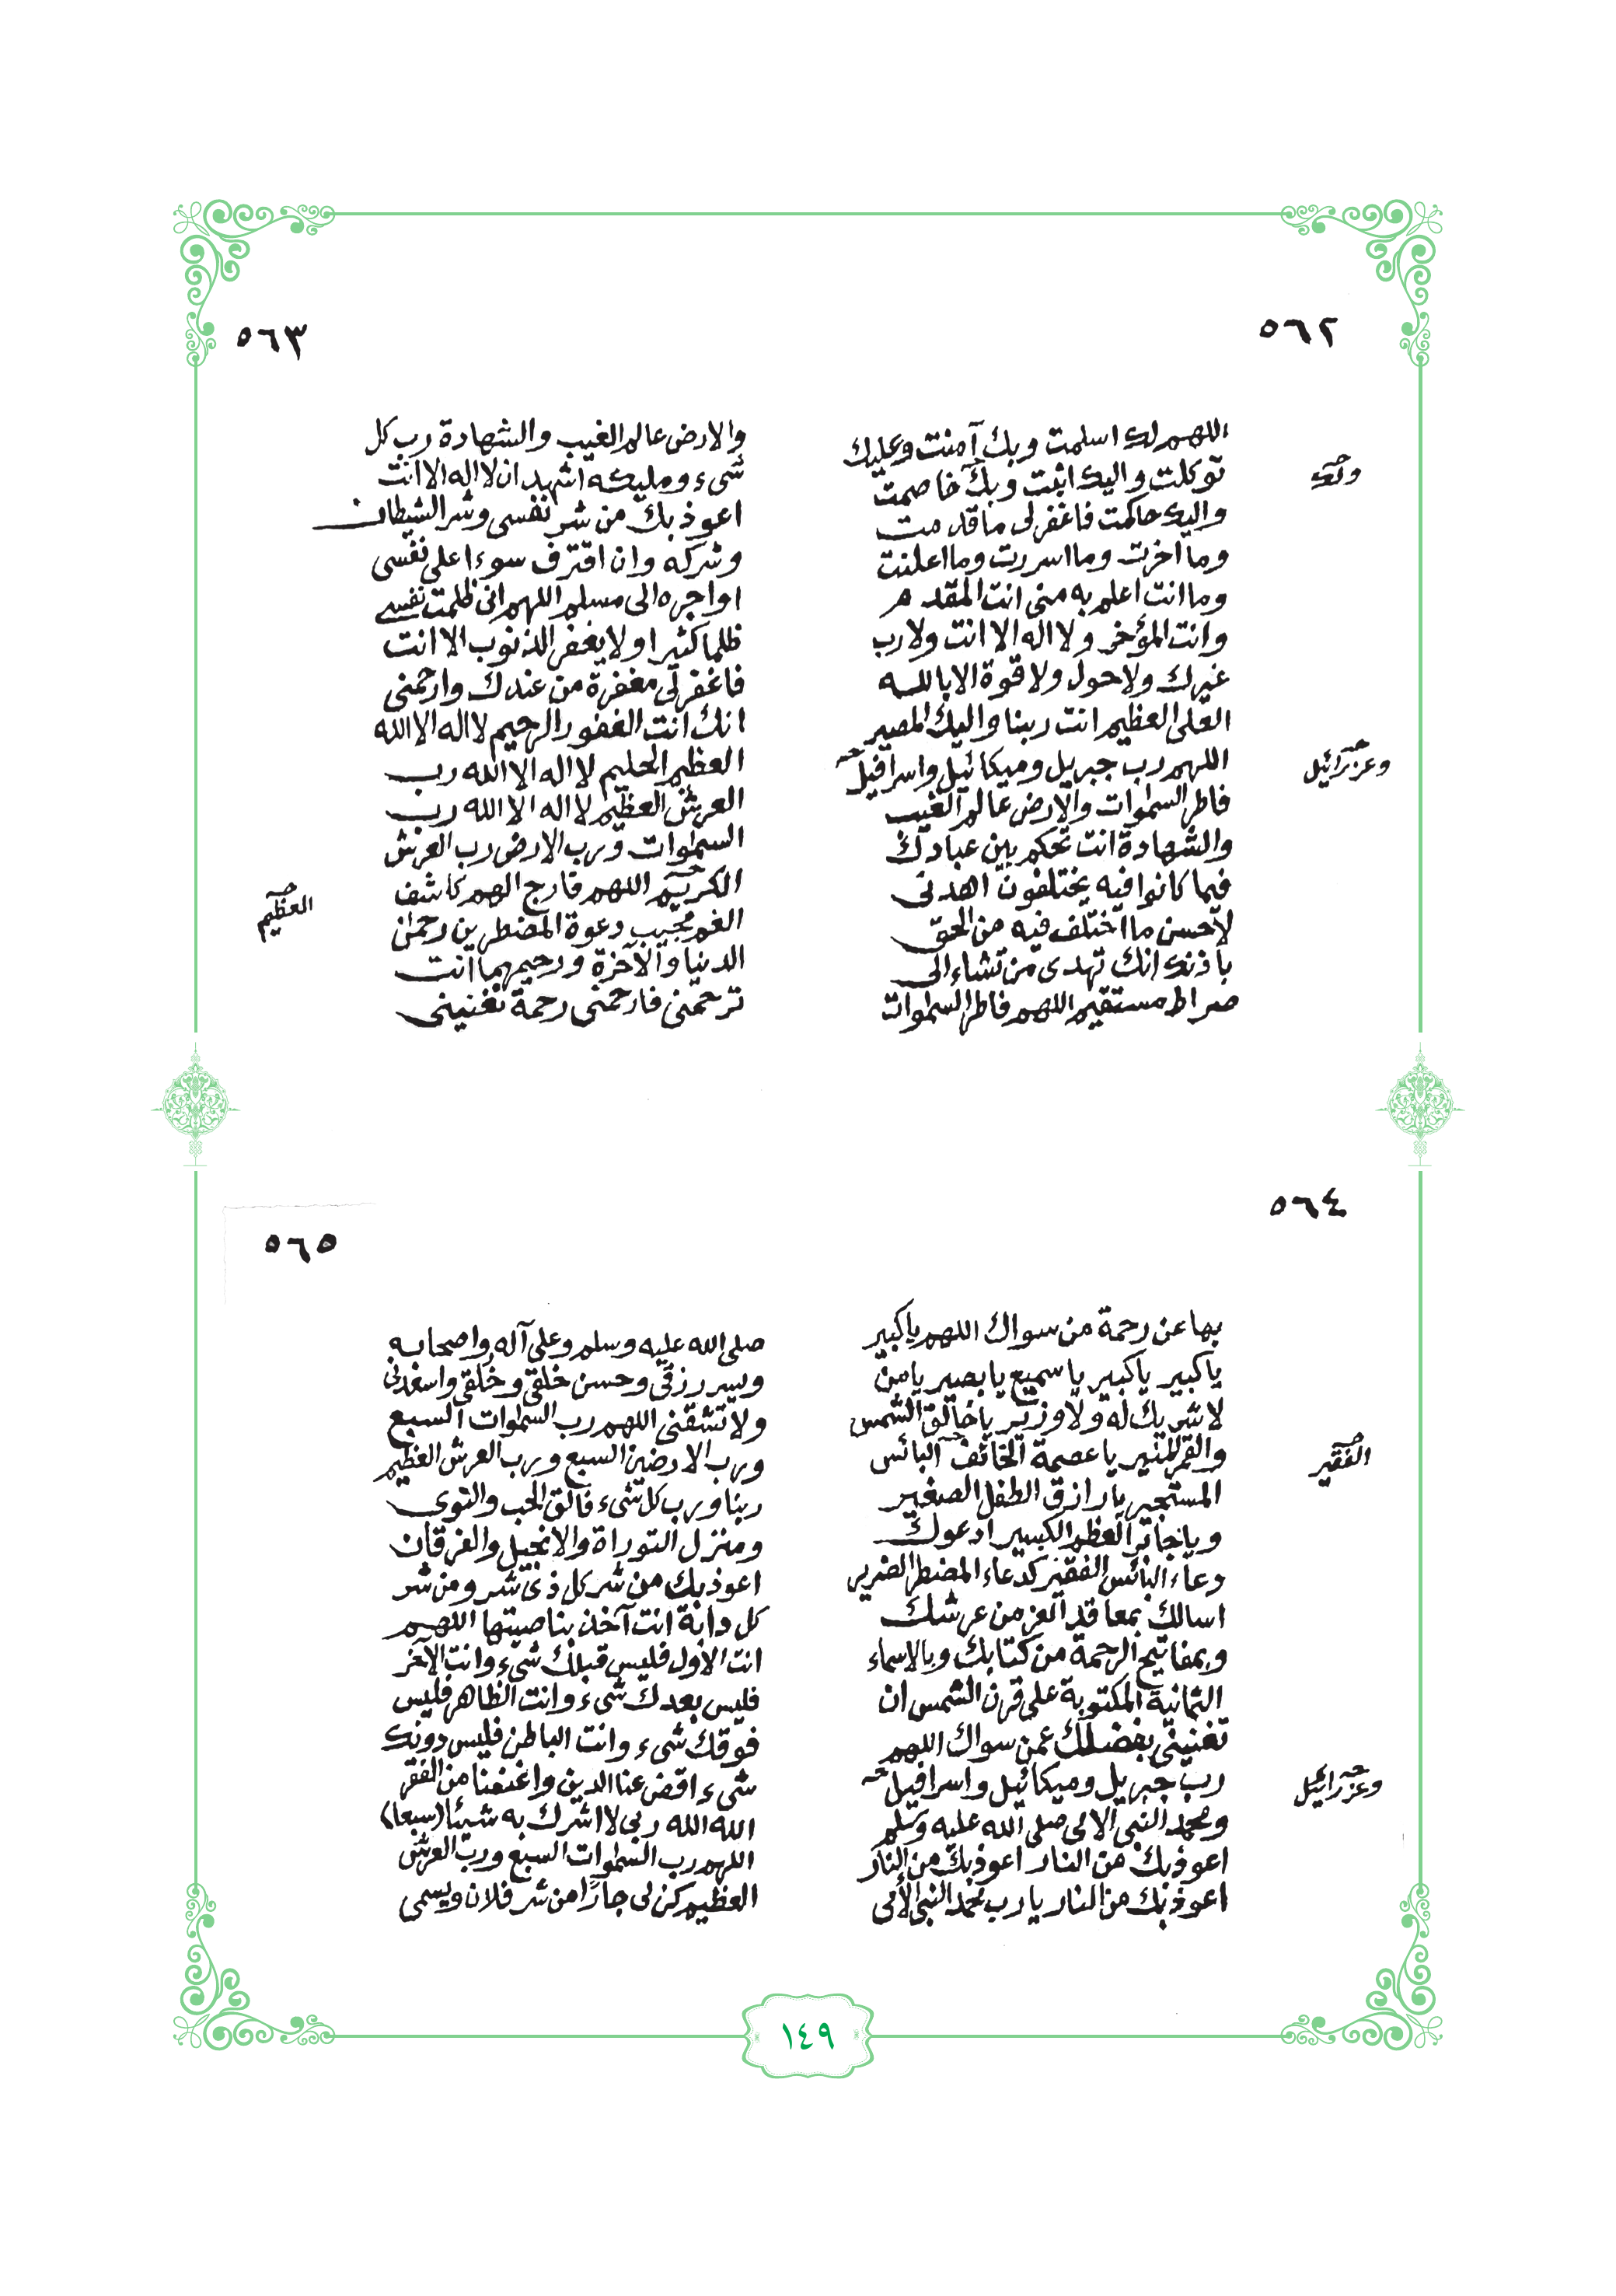 ٥٦٢
اللهم لك اسلمت وبك آمنت وعليك
توكلت واليك انبت وبك خاصمت
واليك حاكمت فاغفر لى ما قدمت
وما اخرت وما اسررت وما اعلنت
وما انت اعلم به منى انت المقدم
وانت المؤخر ولا اله الا انت ولا رب
غيرك ولا حول ولا قوة الا بالله
العلى العظيم انت ربنا واليك المصير
اللهم رب جبريل وميكائيل واسرافيل صح
وعزرائيل صح
فاطر السموات والارض عالم الغيب
والشهادة انت تحكم بين عبادك
فيما كانوا فيه يختلفون اهدنى
لاحسن ما اختلف فيه من الحق
باذنك انك تهدى من تشاء الى
صراط مستقيم اللهم فاطر السموات
٥٦٣
والارض عالم الغيب والشهادة رب كل
شىء ومليكه اشهد ان لا اله الا انت
اعوذ بك من شر نفسى وشر الشيطان
وشركه وان اقترف سوءا على نفسى
او اجره الى مسلم اللهم انى ظلمت نفسى
ظلما كثيرا ولا يغفر الذنوب الا انت
فاغفر لى مغفرة من عندك وارحمنى
انك انت الغفور الرحيم لا اله الا الله
العظيم الحليم لا اله الا الله رب
العرش العظيم لا اله الا الله رب
السموات ورب الارض رب العرش
الكريم صح اللهم فارج الهم كاشف
العظيم صح
الغم مجيب دعوة المضطرين رحمان
الدنيا والآخرة ورحيمهما انت
ترحمنى فارحمنى رحمة تغنينى
٥٦٤
بها عن رحمة من سواك اللهم يا كبير
يا كبير يا كبير يا سميع يا بصير يا من
لا شريك له ولا وزير يا خالق الشمس
والقمر المنير يا عصمة الخائف صح البائس
الفقير صح
المستجير يا رازق الطفل الصغير
ويا جابر العظم الكسير ادعوك
دعاء البائس الفقير كدعاء المضطر الضرير
اسالك بمعاقد العز من عرشك
وبمفاتيح الرحمة من كتابك وبالاسماء
الثمانية المكتوبة على قرن الشمس ان
تغنينى بفضلك عمن سواك اللهم
رب جبريل وميكائيل واسرافيل صح
وعزرائيل صح
ومحمد النبى الامى صلى الله عليه وسلم
اعوذ بك من النار اعوذ بك من النار
اعوذ بك من النار يا رب محمد النبى الأمى
٥٦٥
صلى الله عليه وسلم وعلى آله واصحابه
ويسر رزقى وحسن خلقى وخلقى واسعدنى
ولا تشقنى اللهم رب السموات السبع
ورب الارضين السبع ورب العرش العظيم
ربنا ورب كل شىء فالق الحب والنوى
ومنزل التوراة والانجيل والفرقان
اعوذ بك من شر كل ذى شر ومن شر
كل دابة انت آخذ بناصيتها اللهم
انت الاول فليس قبلك شىء وانت الآخر
فليس بعدك شىء وانت الظاهر فليس
فوقك شىء وانت الباطن فليس دونك
شىء اقض عنا الدين واغننا من الفقر
الله الله ربى لا اشرك به شيئا (سبعا)
اللهم رب السموات السبع ورب العرش
العظيم كن لى جارًا من شر فلان ويسمى
١٤٩